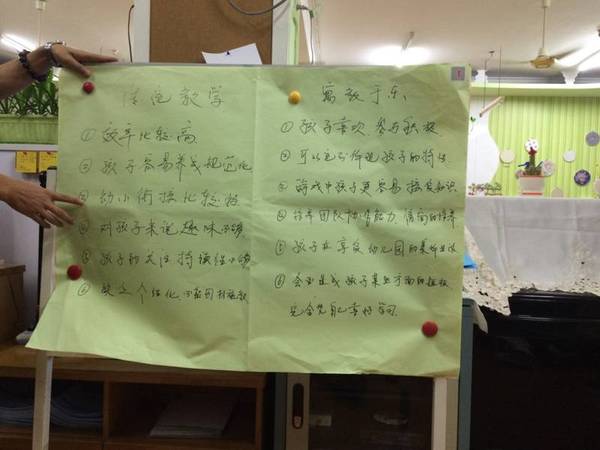 传统教学
①效率比较高
②孩子容易养成规范化
③幼小衔接比较好
④对孩子来说趣味不够
⑤孩子的关注持续性不够
⑥缺乏个性化,不能因材施教
寓教于乐
①孩子喜欢 参与积极
②可以充分体现孩子的特性
③游戏中孩子更容易接受知识
④培养团队协作能力
⑤孩子在享受幼儿园的集体生活
⑥会造成孩子某些方面的
完全凭自己喜好学习